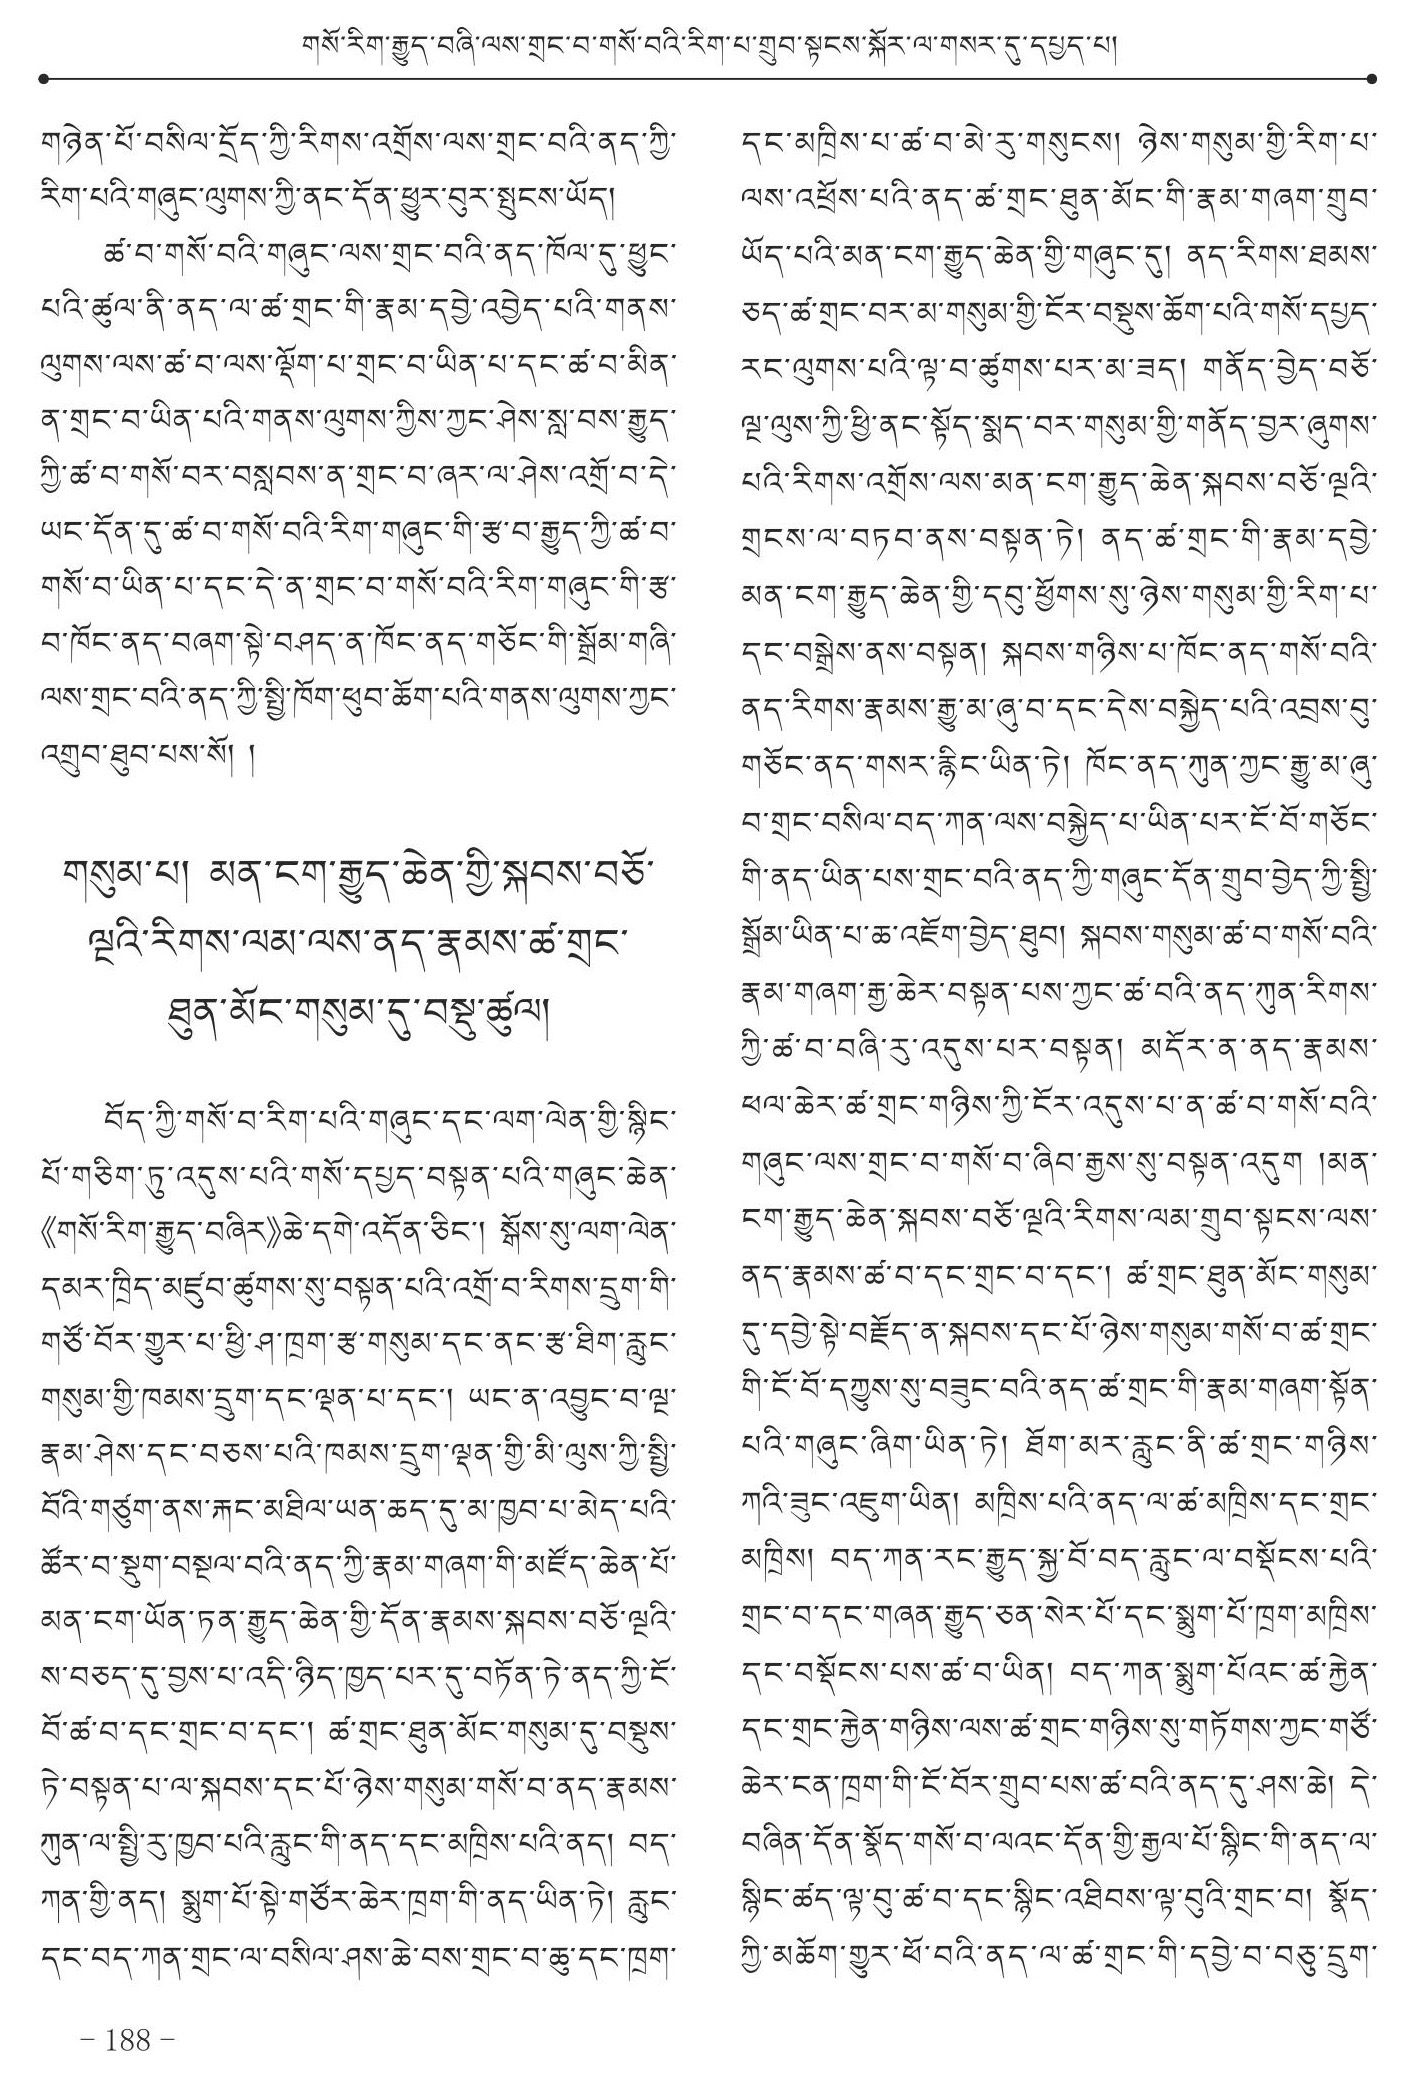 གསོ་རིག་རྒྱུད་བཞི་ལས་གྲང་བ་གསོ་བའི་རིག་པ་གྲུབ་སྟངས་སྐོར་ལ་གསར་དུ་དཔྱད་པ།
གཉེན་པོ་བསིལ་དྲོད་ཀྱི་རིགས་འགྲོས་ལས་གྲང་བའི་ནད་ཀྱི་
རིག་པའི་གཞུང་ལུགས་ཀྱི་ནང་དོན་ཕྱུར་བུར་སྤུངས་ཡོད།
ཚ་བ་གསོ་བའི་གཞུང་ལས་གྲང་བའི་ནད་ཁོལ་དུ་ཕྱུང་
པའི་ཚུལ་ནི་ནད་ལ་ཚ་གྲང་གི་རྣམ་དབྱེ་འབྱེད་པའི་གནས་
ལུགས་ལས་ཚ་བ་ལས་ལྡོག་པ་གྲང་བ་ཡིན་པ་དང་ཚ་བ་མིན་
ན་གྲང་བ་ཡིན་པའི་གནས་ལུགས་ཀྱིས་ཀྱང་ཤེས་སླ་བས་རྒྱུད་
ཀྱི་ཚ་བ་གསོ་བར་བསླབས་ན་གྲང་བ་ཞར་ལ་ཤེས་འགྲོ་བ་དེ་
ཡང་དོན་དུ་ཚ་བ་གསོ་བའི་རིག་གཞུང་གི་རྩ་བ་རྒྱུད་ཀྱི་ཚ་བ་
གསོ་བ་ཡིན་པ་དང་དེ་ན་གྲང་བ་གསོ་བའི་རིག་གཞུང་གི་རྩ་
བ་ཁོང་ནད་བཞག་སྟེ་བཤད་ན་ཁོང་ནད་གཅོང་གི་སྒྲོམ་གཞི་
ལས་གྲང་བའི་ནད་ཀྱི་སྤྱི་ཁོག་ཕུབ་ཆོག་པའི་གནས་ལུགས་ཀྱང་
འགྲུབ་ཐུབ་པས་སོ། །
གསུམ་པ། མན་ངག་རྒྱུད་ཆེན་གྱི་སྐབས་བཅོ་
ལྔའི་རིགས་ལམ་ལས་ནད་རྣམས་ཚ་གྲང་
ཐུན་མོང་གསུམ་དུ་བསྡུ་ཚུལ།
བོད་ཀྱི་གསོ་བ་རིག་པའི་གཞུང་དང་ལག་ལེན་གྱི་སྙིང་
པོ་གཅིག་ཏུ་འདུས་པའི་གསོ་དཔྱད་བསྟན་པའི་གཞུང་ཆེན་
《གསོ་རིག་རྒྱུད་བཞིར》ཆེ་དགེ་འདོན་ཅིང་། སྒོས་སུ་ལག་ལེན་
དམར་ཁྲིད་མཛུབ་ཚུགས་སུ་བསྟན་པའི་འགྲོ་བ་རིགས་དྲུག་གི་
གཙོ་བོར་གྱུར་པ་ཕྱི་ཤ་ཁྲག་རྩ་གསུམ་དང་ནང་རྩ་ཐིག་རླུང་
གསུམ་གྱི་ཁམས་དྲུག་དང་ལྡན་པ་དང་། ཡང་ན་འབྱུང་བ་ལྔ་
རྣམ་ཤེས་དང་བཅས་པའི་ཁམས་དྲུག་ལྡན་གྱི་མི་ལུས་ཀྱི་སྤྱི་
བོའི་གཙུག་ནས་རྐང་མཐིལ་ཡན་ཆད་དུ་མ་ཁྱབ་པ་མེད་པའི་
ཚོར་བ་སྡུག་བསྔལ་བའི་ནད་ཀྱི་རྣམ་གཞག་གི་མཛོད་ཆེན་པོ་
མན་ངག་ཡོན་ཏན་རྒྱུད་ཆེན་གྱི་དོན་རྣམས་སྐབས་བཅོ་ལྔའི་
ས་བཅད་དུ་བྱས་པ་འདི་ཉིད་ཁྱད་པར་དུ་བཏོན་ཏེ་ནད་ཀྱི་ངོ་
བོ་ཚ་བ་དང་གྲང་བ་དང་། ཚ་གྲང་ཐུན་མོང་གསུམ་དུ་བསྡུས་
ཏེ་བསྟན་པ་ལ་སྐབས་དང་པོ་ཉེས་གསུམ་གསོ་བ་ནད་རྣམས་
ཀུན་ལ་སྤྱི་རུ་ཁྱབ་པའི་རླུང་གི་ནད་དང་མཁྲིས་པའི་ནད། བད་
ཀན་གྱི་ནད། སྨུག་པོ་སྟེ་གཙོར་ཆེར་ཁྲག་གི་ནད་ཡིན་ཏེ། རླུང་
དང་བད་ཀན་གྲང་ལ་བསིལ་ཤས་ཆེ་བས་གྲང་བ་ཆུ་དང་ཁྲག་
དང་མཁྲིས་པ་ཚ་བ་མེ་རུ་གསུངས། ཉེས་གསུམ་གྱི་རིག་པ་
ལས་འཕྲོས་པའི་ནད་ཚ་གྲང་ཐུན་མོང་གི་རྣམ་གཞག་གྲུབ་
ཡོད་པའི་མན་ངག་རྒྱུད་ཆེན་གྱི་གཞུང་དུ། ནད་རིགས་ཐམས་
ཅད་ཚ་གྲང་བར་མ་གསུམ་གྱི་ངོར་བསྡུས་ཆོག་པའི་གསོ་དཔྱད་
རང་ལུགས་པའི་ལྟ་བ་ཚུགས་པར་མ་ཟད། གནོད་བྱེད་བཅོ་
ལྔ་ལུས་ཀྱི་ཕྱི་ནང་སྟོད་སྨད་བར་གསུམ་གྱི་གནོད་བྱར་ཞུགས་
པའི་རིགས་འགྲོས་ལས་མན་ངག་རྒྱུད་ཆེན་སྐབས་བཅོ་ལྔའི་
གྲངས་ལ་བཏབ་ནས་བསྟན་ཏེ། ནད་ཚ་གྲང་གི་རྣམ་དབྱེ་
མན་ངག་རྒྱུད་ཆེན་གྱི་དབུ་ཕྱོགས་སུ་ཉེས་གསུམ་གྱི་རིག་པ་
དང་བསྒྲེས་ནས་བསྟན། སྐབས་གཉིས་པ་ཁོང་ནད་གསོ་བའི་
ནད་རིགས་རྣམས་རྒྱུ་མ་ཞུ་བ་དང་དེས་བསྐྱེད་པའི་འབྲས་བུ་
གཅོང་ནད་གསར་རྙིང་ཡིན་ཏེ། ཁོང་ནད་ཀུན་ཀྱང་རྒྱུ་མ་ཞུ་
བ་གྲང་བསིལ་བད་ཀན་ལས་བསྐྱེད་པ་ཡིན་པར་ངོ་བོ་གཅོང་
གི་ནད་ཡིན་པས་གྲང་བའི་ནད་ཀྱི་གཞུང་དོན་གྲུབ་བྱེད་ཀྱི་སྤྱི་
སྒྲོམ་ཡིན་པ་ཆ་འཇོག་བྱེད་ཐུབ། སྐབས་གསུམ་ཚ་བ་གསོ་བའི་
རྣམ་གཞག་རྒྱ་ཆེར་བསྟན་པས་ཀྱང་ཚ་བའི་ནད་ཀུན་རིགས་
ཀྱི་ཚ་བ་བཞི་རུ་འདུས་པར་བསྟན། མདོར་ན་ནད་རྣམས་
ཕལ་ཆེར་ཚ་གྲང་གཉིས་ཀྱི་ངོར་འདུས་པ་ན་ཚ་བ་གསོ་བའི་
གཞུང་ལས་གྲང་བ་གསོ་བ་ཞིབ་རྒྱས་སུ་བསྟན་འདུག །མན་
ངག་རྒྱུད་ཆེན་སྐབས་བཅོ་ལྔའི་རིགས་ལམ་གྲུབ་སྟངས་ལས་
ནད་རྣམས་ཚ་བ་དང་གྲང་བ་དང་། ཚ་གྲང་ཐུན་མོང་གསུམ་
དུ་དབྱེ་སྟེ་བརྗོད་ན་སྐབས་དང་པོ་ཉེས་གསུམ་གསོ་བ་ཚ་གྲང་
གི་ངོ་བོ་དཀྱུས་སུ་བཟུང་བའི་ནད་ཚ་གྲང་གི་རྣམ་གཞག་སྟོན་
པའི་གཞུང་ཞིག་ཡིན་ཏེ། ཐོག་མར་རླུང་ནི་ཚ་གྲང་གཉིས་
ཀའི་ཟུང་འཇུག་ཡིན། མཁྲིས་པའི་ནད་ལ་ཚ་མཁྲིས་དང་གྲང་
མཁྲིས། བད་ཀན་རང་རྒྱུད་སྐྱ་བོ་བད་རླུང་ལ་བསྡོངས་པའི་
གྲང་བ་དང་གཞན་རྒྱུད་ཅན་སེར་པོ་དང་སྨུག་པོ་ཁྲག་མཁྲིས་
དང་བསྡོངས་པས་ཚ་བ་ཡིན། བད་ཀན་སྨུག་པོའང་ཚ་རྐྱེན་
དང་གྲང་རྐྱེན་གཉིས་ལས་ཚ་གྲང་གཉིས་སུ་གཏོགས་ཀྱང་གཙོ་
ཆེར་ངན་ཁྲག་གི་ངོ་བོར་གྲུབ་པས་ཚ་བའི་ནད་དུ་ཤས་ཆེ། དེ་
བཞིན་དོན་སྣོད་གསོ་བ་ལའང་དོན་གྱི་རྒྱལ་པོ་སྙིང་གི་ནད་ལ་
སྙིང་ཚད་ལྟ་བུ་ཚ་བ་དང་སྙིང་འཐིབས་ལྟ་བུའི་གྲང་བ། སྣོད་
ཀྱི་མཆོག་གྱུར་ཕོ་བའི་ནད་ལ་ཚ་གྲང་གི་དབྱེ་བ་བཅུ་དྲུག་
- 188 -